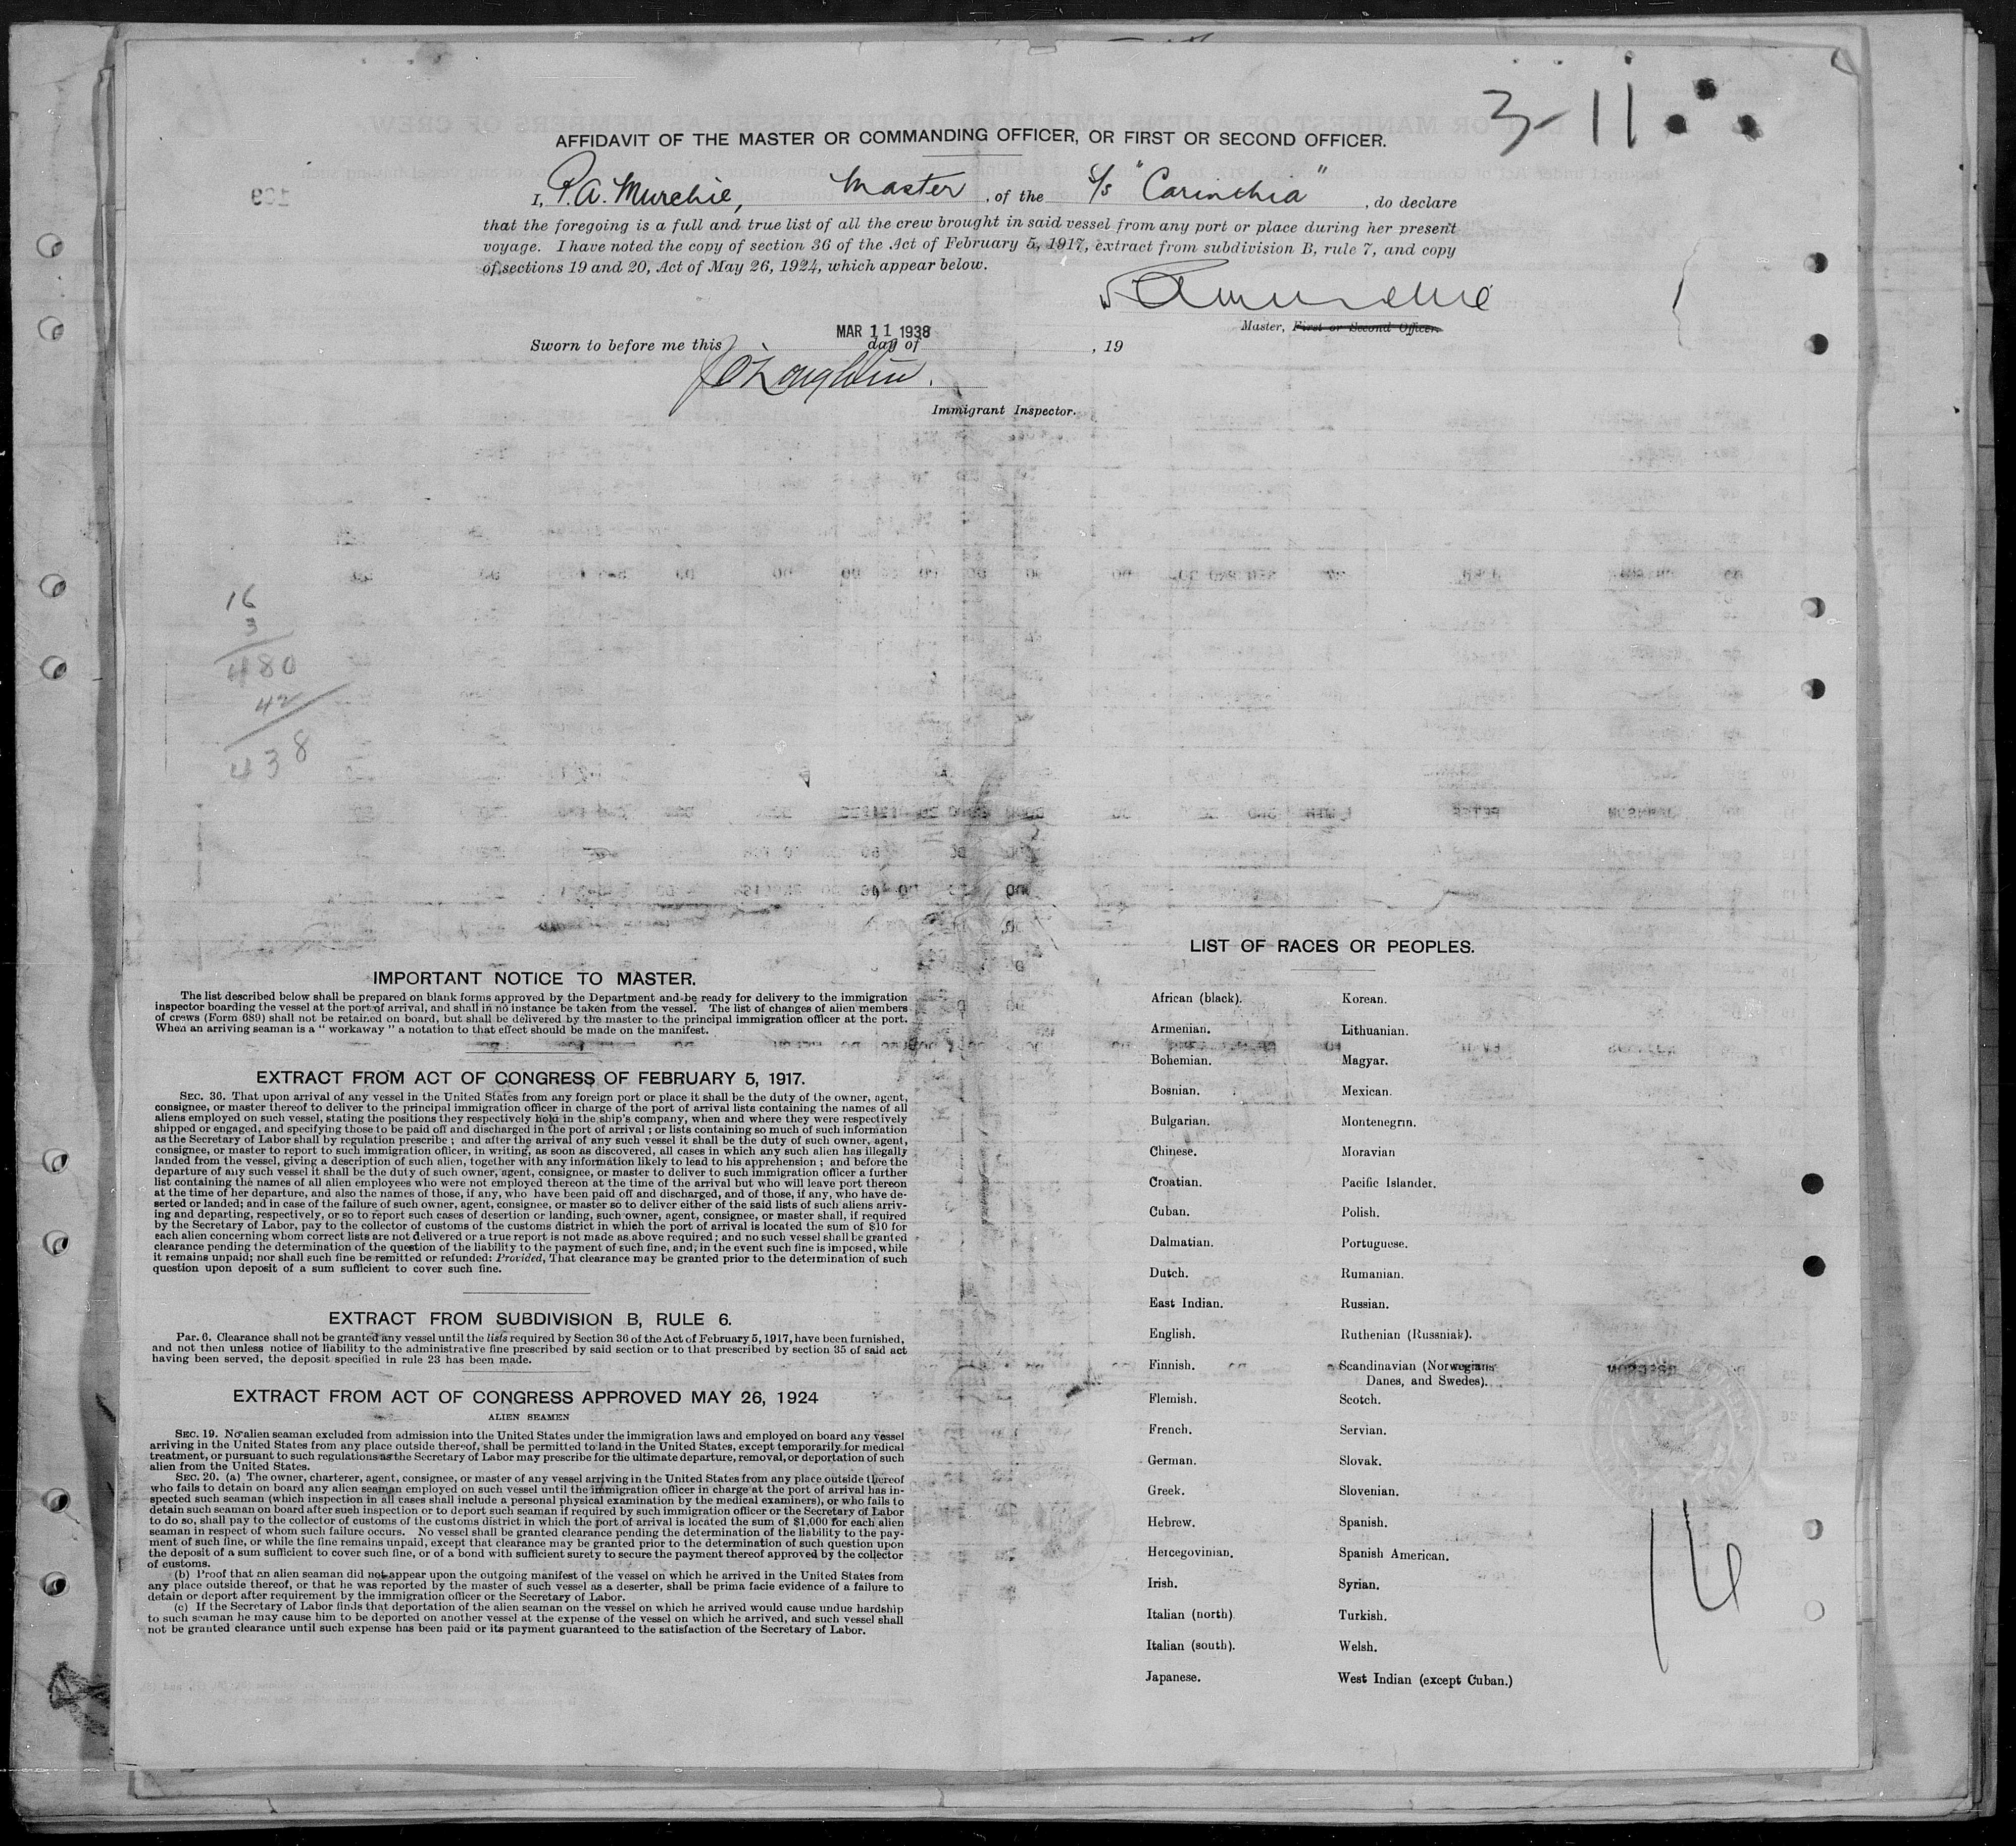 3-11
AFFIDAVIT OF THE MASTER OR COMMANDING OFFICER, OR FIRST OR SECOND OFFICER.
I, P.A. Murchie, Master, of the S/s "Carinthia", do declare
that the foregoing is a full and true list of all the crew brought in said vessel from any port or place during her present
voyage. I have noted the copy of section 36 of the Act of February 5, 1917, extract from subdivision B, rule 7, and copy
of sections 19 and 20, Act of May 26, 1924, which appear below.
PAMurchie
Master, First or Second Officer.
MAR 11 1938
Sworn to before me this day of , 19
J O'Loughlin.
Immigrant Inspector.
16
3
480
42
438
IMPORTANT NOTICE TO MASTER.
The list described below shall be prepared on blank forms approved by the Department and be ready for delivery to the immigration
inspector boarding the vessel at the port of arrival, and shall in no instance be taken from the vessel. The list of changes of alien members
of crews (Form 689) shall not be retained on board, but shall be delivered by the master to the principal immigration officer at the port.
When an arriving seaman is a "workaway" a notation to that effect should be made on the manifest.
EXTRACT FROM ACT OF CONGRESS OF FEBRUARY 5, 1917.
SEC. 36. That upon arrival of any vessel in the United States from any foreign port or place it shall be the duty of the owner, agent,
consignee, or master thereof to deliver to the principal immigration officer in charge of the port of arrival lists containing the names of all
aliens employed on such vessel, stating the positions they respectively hold in the ship's company, when and where they were respectively
shipped or engaged, and specifying those to be paid off and discharged in the port of arrival; or lists containing so much of such information
as the Secretary of Labor shall by regulation prescribe; and after the arrival of any such vessel it shall be the duty of such owner, agent,
consignee, or master to report to such immigration officer, in writing, as soon as discovered, all cases in which any such alien has illegally
landed from the vessel, giving a description of such alien, together with any information likely to lead to his apprehension; and before the
departure of any such vessel it shall be the duty of such owner, agent, consignee, or master to deliver to such immigration officer a further
list containing the names of all alien employees who were not employed thereon at the time of the arrival but who will leave port thereon
at the time of her departure, and also the names of those, if any, who have been paid off and discharged, and of those, if any, who have de-
serted or landed; and in case of the failure of such owner, agent, consignee, or master so to deliver either of the said lists of such aliens arriv-
ing and departing, respectively, or so to report such cases of desertion or landing, such owner, agent, consignee, or master shall, if required
by the Secretary of Labor, pay to the collector of customs of the customs district in which the port of arrival is located the sum of $10 for
each alien concerning whom correct lists are not delivered or a true report is not made as above required; and no such vessel shall be granted
clearance pending the determination of the question of the liability to the payment of such fine, and, in the event such fine is imposed, while
it remains unpaid; nor shall such fine be remitted or refunded: Provided, That clearance may be granted prior to the determination of such
question upon deposit of a sum sufficient to cover such fine.
EXTRACT FROM SUBDIVISION B, RULE 6.
Par. 6. Clearance shall not be granted any vessel until the lists required by Section 36 of the Act of February 5, 1917, have been furnished,
and not then unless notice of liability to the administrative fine prescribed by said section or to that prescribed by section 35 of said act
having been served, the deposit specified in rule 23 has been made.
EXTRACT FROM ACT OF CONGRESS APPROVED MAY 26, 1924
ALIEN SEAMEN
SEC. 19. No alien seaman excluded from admission into the United States under the immigration laws and employed on board any vessel
arriving in the United States from any place outside thereof, shall be permitted to land in the United States, except temporarily for medical
treatment, or pursuant to such regulations as the Secretary of Labor may prescribe for the ultimate departure, removal, or deportation of such
alien from the United States.
SEC. 20. (a) The owner, charterer, agent, consignee, or master of any vessel arriving in the United States from any place outside thereof
who fails to detain on board any alien seaman employed on such vessel until the immigration officer in charge at the port of arrival has in-
spected such seaman (which inspection in all cases shall include a personal physical examination by the medical examiners), or who fails to
detain such seaman on board after such inspection or to deport such seaman if required by such immigration officer or the Secretary of Labor
to do so, shall pay to the collector of customs of the customs district in which the port of arrival is located the sum of $1,000 for each alien
seaman in respect of whom such failure occurs. No vessel shall be granted clearance pending the determination of the liability to the pay-
ment of such fine, or while the fine remains unpaid, except that clearance may be granted prior to the determination of such question upon
the deposit of a sum sufficient to cover such fine, or of a bond with sufficient surety to secure the payment thereof approved by the collector
of customs.
(b) Proof that an alien seaman did not appear upon the outgoing manifest of the vessel on which he arrived in the United States from
any place outside thereof, or that he was reported by the master of such vessel as a deserter, shall be prima facie evidence of a failure to
detain or deport after requirement by the immigration officer or the Secretary of Labor.
(c) If the Secretary of Labor finds that deportation of the alien seaman on the vessel on which he arrived would cause undue hardship
to such seaman he may cause him to be deported on another vessel at the expense of the vessel on which he arrived, and such vessel shall
not be granted clearance until such expense has been paid or its payment guaranteed to the satisfaction of the Secretary of Labor.
LIST OF RACES OR PEOPLES.
African (black). Korean.
Armenian. Lithuanian.
Bohemian. Magyar.
Bosnian. Mexican.
Bulgarian. Montenegrin.
Chinese. Moravian
Croatian. Pacific Islander.
Cuban. Polish.
Dalmatian. Portuguese.
Dutch. Rumanian.
East Indian. Russian.
English. Ruthenian (Russniak).
Finnish. Scandinavian (Norwegians
Danes, and Swedes).
Flemish. Scotch.
French. Servian.
German. Slovak.
Greek. Slovenian.
Hebrew. Spanish.
Hercegovinian. Spanish American.
Irish. Syrian.
Italian (north). Turkish.
Italian (south). Welsh.
Japanese. West Indian (except Cuban.)
16